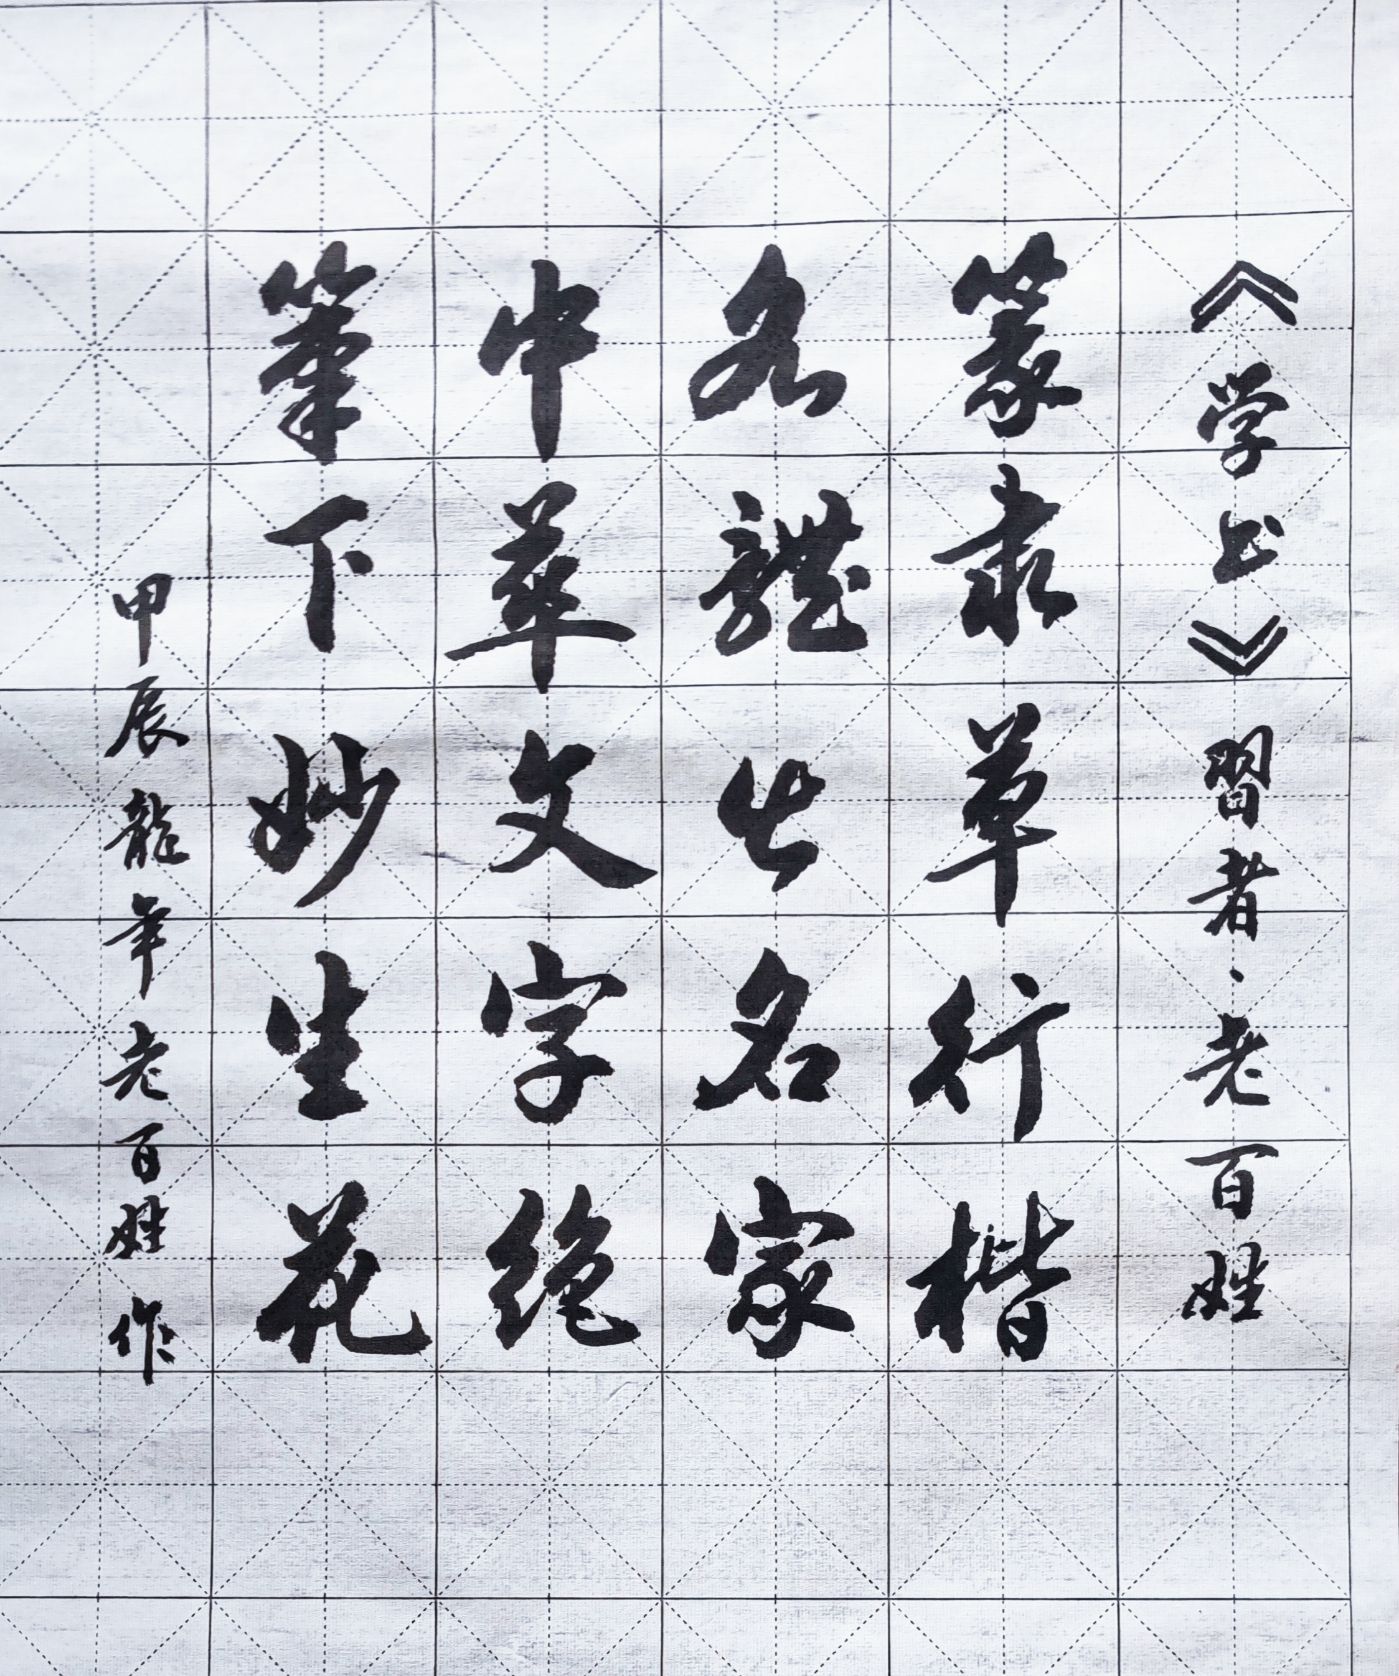 《学书》習者·老百姓
篆隶草行楷
各體出名家
中華文字绝
筆下妙生花
甲辰龍年老百姓作